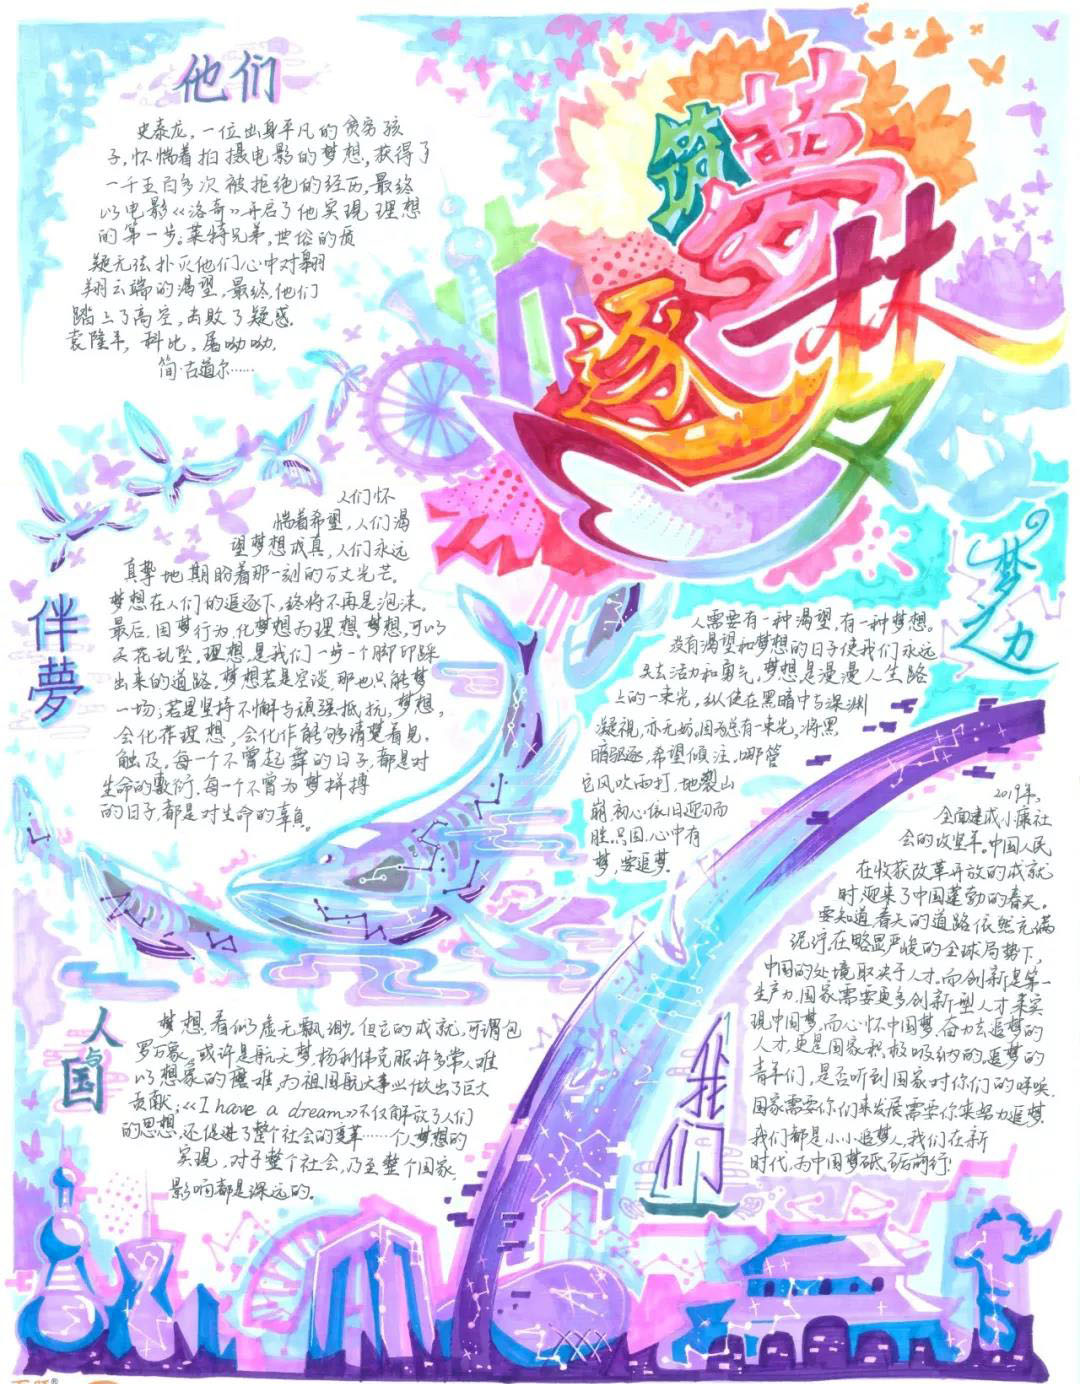 筑夢
逐梦
他们
史泰龙，一位出身平凡的贫穷孩
子，怀惴着拍摄电影的梦想，获得了
一千五百多次被拒绝的经历，最终
以电影《洛奇》开启了他实现理想
的第一步。莱特兄弟，世俗的质
疑无法扑灭他们心中对翱
翔云端的渴望，最终，他们
踏上了高空，击败了疑惑。
袁隆平，科比，屠呦呦，
简·古道尔……
伴夢
人们怀
惴着希望，人们渴
望梦想成真，人们永远
真挚地期盼着那一刻的万丈光芒。
梦想在人们的追逐下，终将不再是泡沫。
最后，因梦行为，化梦想为理想。梦想，可以
天花乱坠，理想，是我们一步一个脚印踩
出来的道路。梦想若是空谈，那也只能梦
一场；若是坚持不懈与顽强抵抗，梦想，
会化作理想，会化作能够清楚看见，
触及。每一个不曾起舞的日子，都是对
生命的敷衍，每一个不曾为梦拼搏
的日子，都是对生命的辜负。
梦之力
人需要有一种渴望，有一种梦想。
没有渴望和梦想的日子使我们永远
失去活力和勇气，梦想是漫漫人生路
上的一束光，纵使在黑暗中与深渊
凝视，亦无妨。因为总有一束光，将黑
暗驱逐，希望倾注，哪管
它风吹雨打，地裂山
崩，初心依旧迎刃而
胜。只因，心中有
梦，要追梦。
人与国
梦想，看似虚无飘渺，但它的成就，可谓包
罗万象。或许是航天梦，杨利伟克服许多常人难
以想象的磨难，为祖国航天事业做出了巨大
贡献；《I have a dream》不仅解放了人们
的思想，还促进了整个社会的变革……个人梦想的
实现，对于整个社会，乃至整个国家，
影响都是深远的。
我们
2019年，
全面建成小康社
会的攻坚年。中国人民
在收获改革开放的成就
时，迎来了中国蓬勃的春天。
要知道，春天的道路依然充满
泥泞，在略显严峻的全球局势下，
中国的处境取决于人才。而创新是第一
生产力，国家需要更多创新型人才来实
现中国梦，而心怀中国梦，奋力去追梦的
人才，更是国家积极吸纳的。追梦的
青年们，是否听到国家对你们的呼唤，
国家需要你们来发展，需要你来努力追梦。
我们都是小小追梦人，我们在新
时代，为中国梦砥砺前行！